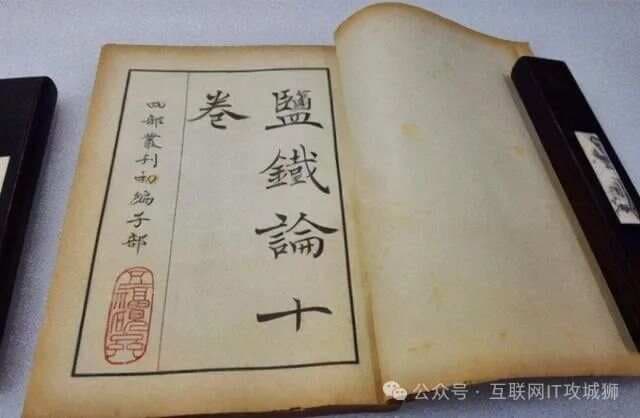 鹽鐵論十
卷
四部叢刊初編子部
公众号·互联网IT攻城狮